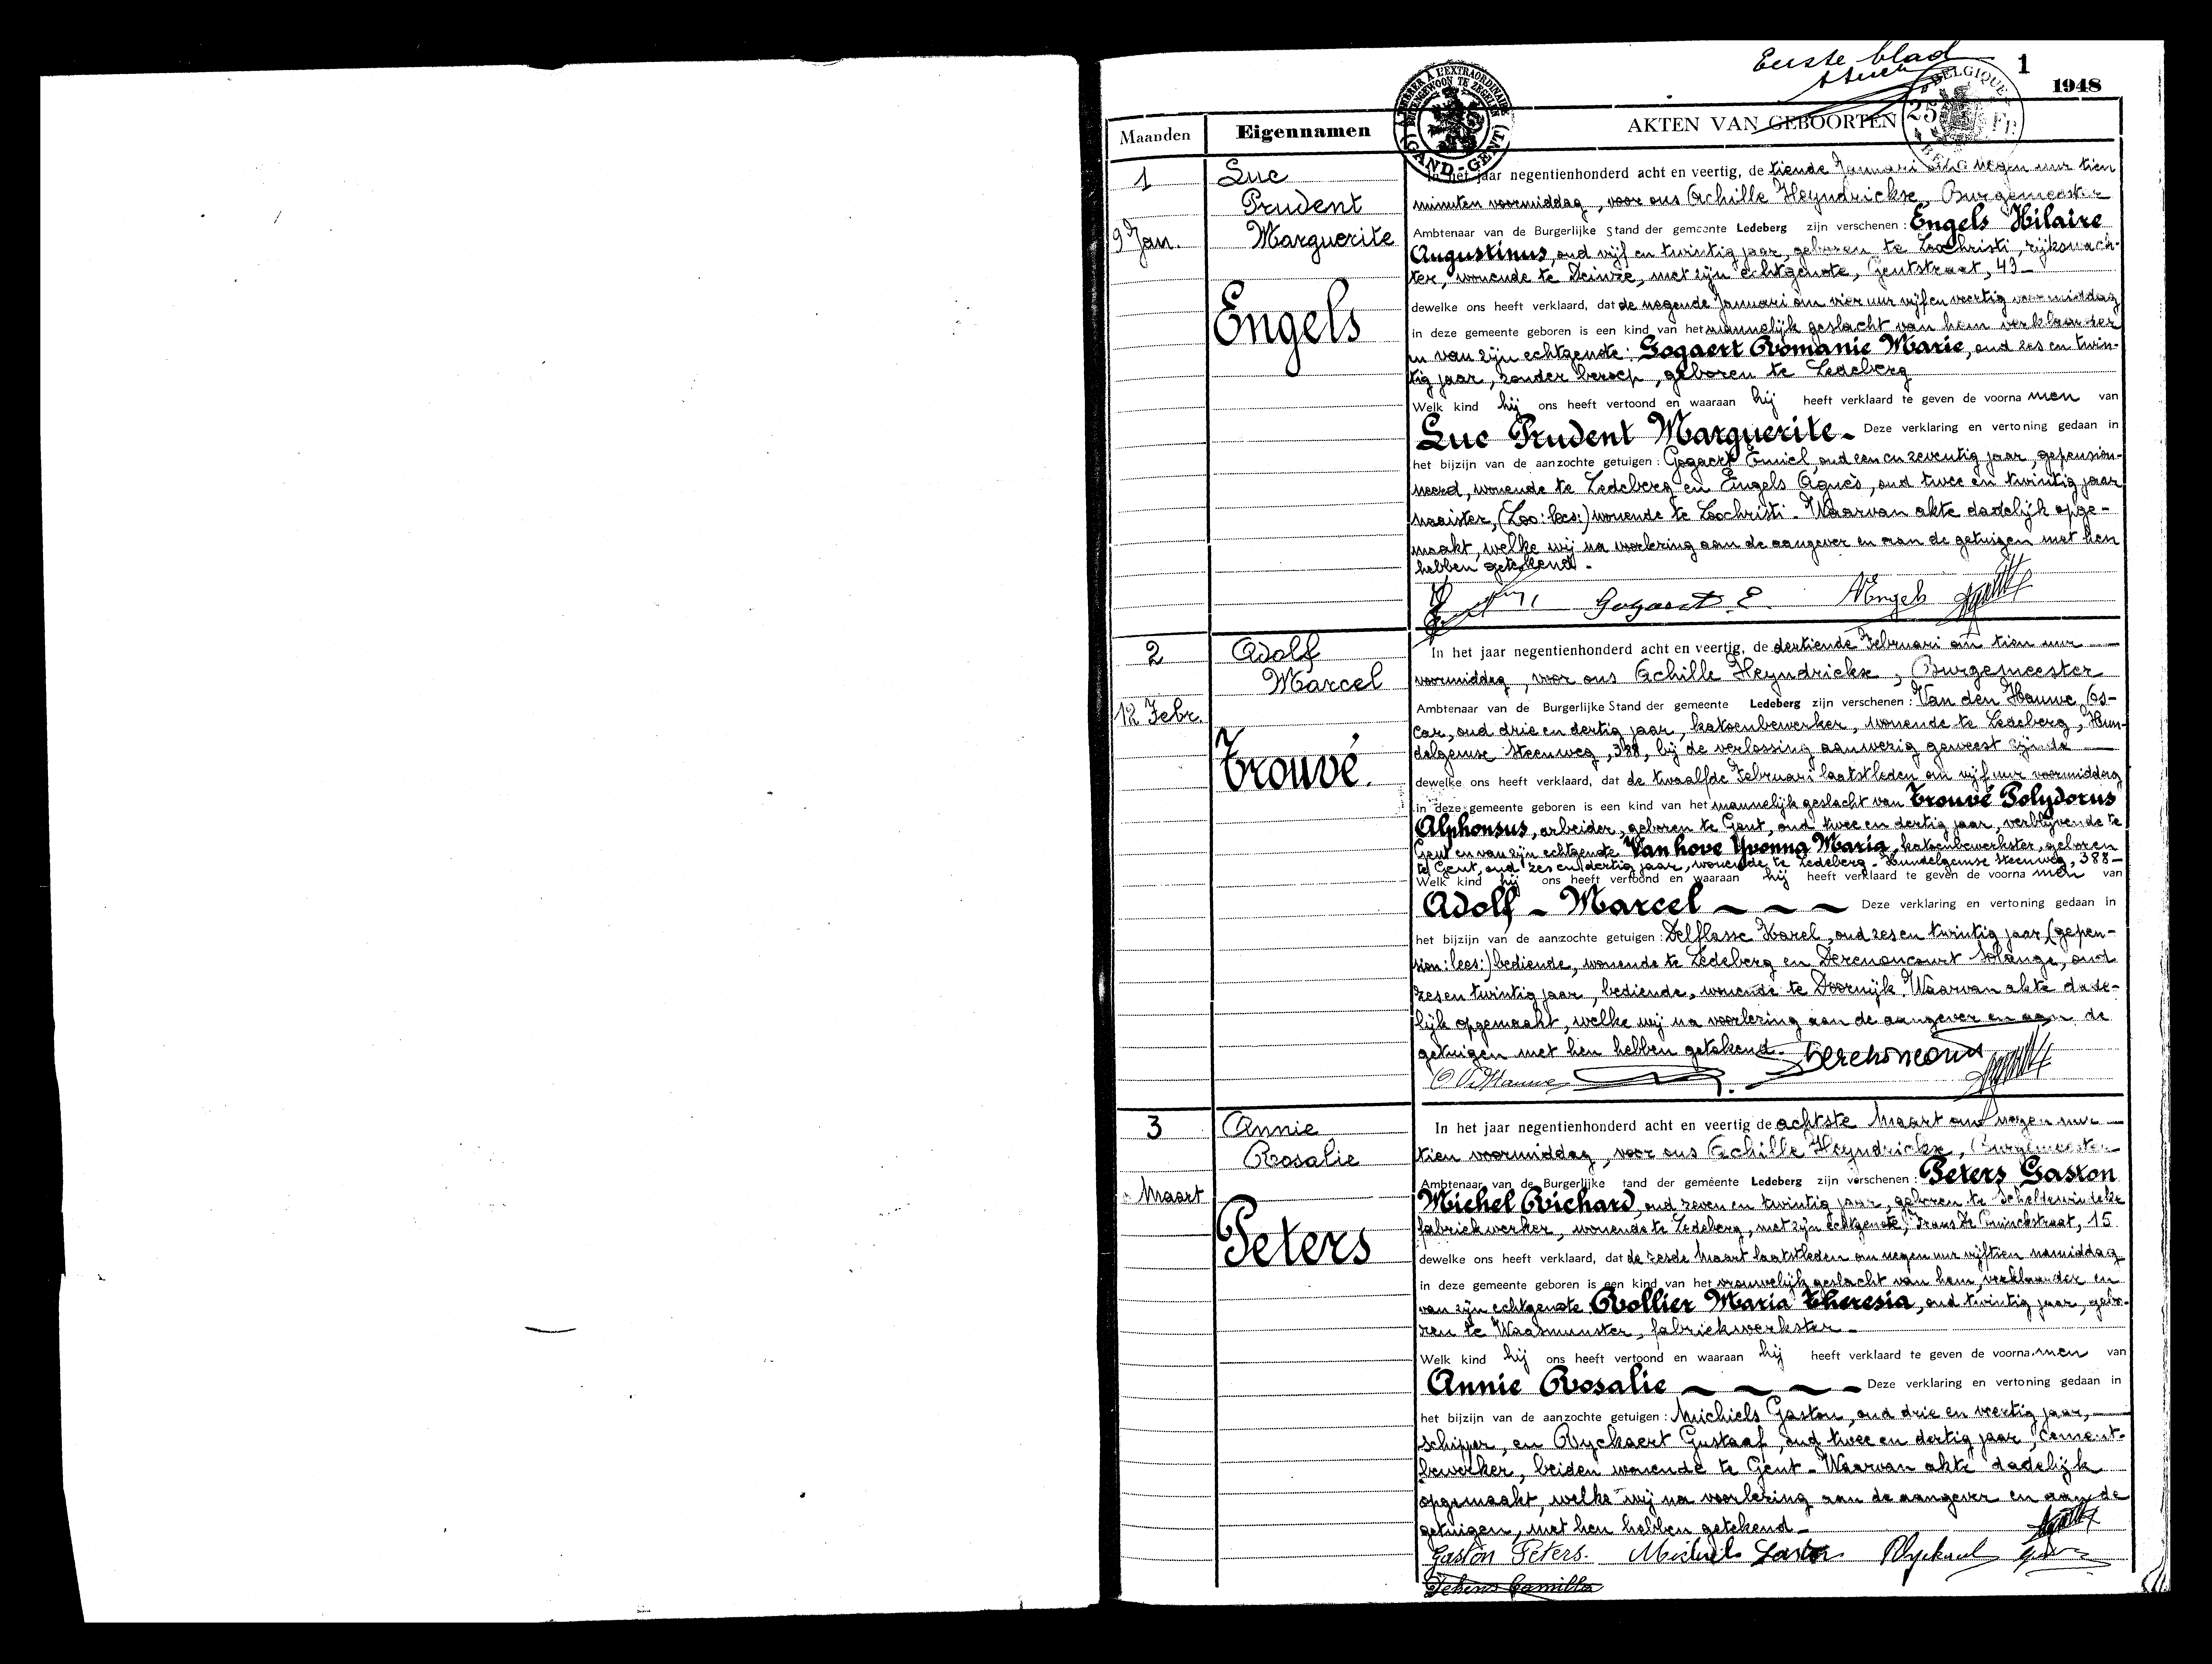 Eerste blad
1
1948
A TIMBRER A L'EXTRAORDINAIRE
BUITENGEWOON TE ZEGELEN
GAND - GENT
BELGIQUE
25 FR.
BELG
Maanden Eigennamen AKTEN VAN GEBOORTEN
1
9 Jan.
Luc
Prudent
Marguerite
Engels
In het jaar negentienhonderd acht en veertig, de tiende Januari om negen uur tien
minuten voormiddag, voor ons Achille Heyndrickx, Burgemeester
Ambtenaar van de Burgerlijke Stand der gemeente Ledeberg zijn verschenen: Engels Hilaire
Augustinus, oud vijf en twintig jaar, geboren te Loochristi, rijkswach-
ter, wonende te Deinze, met zijn echtgenote, Gentstraat, 43 -
dewelke ons heeft verklaard, dat de negende Januari om vier uur vijf en veertig voormiddag
in deze gemeente geboren is een kind van het mannelijk geslacht van hem verklaarder
en van zijn echtgenote: Gogaert Romanie Marie, oud zes en twin-
tig jaar, zonder beroep, geboren te Ledeberg
Welk kind hij ons heeft vertoond en waaraan hij heeft verklaard te geven de voorna men van
Luc Prudent Marguerite - Deze verklaring en vertoning gedaan in
het bijzijn van de aanzochte getuigen: Gogaert Emiel, oud een en zeventig jaar, gepension-
neerd, wonende te Ledeberg en Engels Agnès, oud twee en twintig jaar
naaister, (Loo: lees:) wonende te Loochristi - Waarvan akte dadelijk opge-
maakt, welke wij na voorlezing aan de aangever en aan de getuigen met hen
hebben getekend.
Gogaert E. AEngels
2
12 Febr.
Adolf
Marcel
Trouvé.
In het jaar negentienhonderd acht en veertig, de dertiende Februari om tien uur
voormiddag, voor ons Achille Heyndrickx, Burgemeester
Ambtenaar van de Burgerlijke Stand der gemeente Ledeberg zijn verschenen: Van den Hauwe Os-
car, oud drie en dertig jaar, katoenbewerker, wonende te Ledeberg, Hun-
delgemse Steenweg, 388, bij de verlossing aanwezig geweest zijnde
dewelke ons heeft verklaard, dat de twaalfde Februari laatstleden om vijf uur voormiddag
in deze gemeente geboren is een kind van het mannelijk geslacht van Trouvé Polydorus
Alphonsus, arbeider, geboren te Gent, oud twee en dertig jaar, verblijvende te
Gent en van zijn echtgenote Van hove Yvonna Maria, katoenbewerkster, geboren
te Gent, oud zes en dertig jaar, wonende te Ledeberg - Hundelgemse Steenweg, 388 -
Welk kind hij ons heeft vertoond en waaraan hij heeft verklaard te geven de voorna men van
Adolf - Marcel Deze verklaring en vertoning gedaan in
het bijzijn van de aanzochte getuigen: Delflasse Karel, oud zes en twintig jaar, (gepen-
sion: lees:) bediende, wonende te Ledeberg en Derenoncourt Solange, oud
zes en twintig jaar, bediende, wonende te Doornijk. Waarvan akte dade-
lijk opgemaakt, welke wij na voorlezing aan de aangever en aan de
getuigen met hen hebben getekend.
O Vd Hauwe
3
Maart
Annie
Rosalie
Peters
In het jaar negentienhonderd acht en veertig de achtste Maart om negen uur
tien voormiddag, voor ons Achille Heyndrickx, Burgemeester
Ambtenaar van de Burgerlijke tand der gemeente Ledeberg zijn verschenen: Peters Gaston
Michel Richard, oud zeven en twintig jaar, geboren te Scheldewindeke
fabriekwerker, wonende te Ledeberg, met zijn echtgenote, Frans De Coninckstraat, 15
dewelke ons heeft verklaard, dat de zesde Maart laatstleden om negen uur vijftien namiddag
in deze gemeente geboren is een kind van het vrouwelijk geslacht van hem, verklaarder en
van zijn echtgenote Rollier Maria Theresia, oud twintig jaar, gebo-
ren te Waasmunster, fabriekwerkster -
Welk kind hij ons heeft vertoond en waaraan hij heeft verklaard te geven de voorna men van
Annie Rosalie Deze verklaring en vertoning gedaan in
het bijzijn van de aanzochte getuigen: Michiels Gaston, oud drie en veertig jaar,
schipper, en Ryckaert Gustaaf, oud twee en dertig jaar, cement-
bewerker, beiden wonende te Gent - Waarvan akte dadelijk
opgemaakt, welke wij na voorlezing aan de aangever en aan de
getuigen, met hen hebben getekend -
Gaston Peters. Michiels Gaston Ryckaert